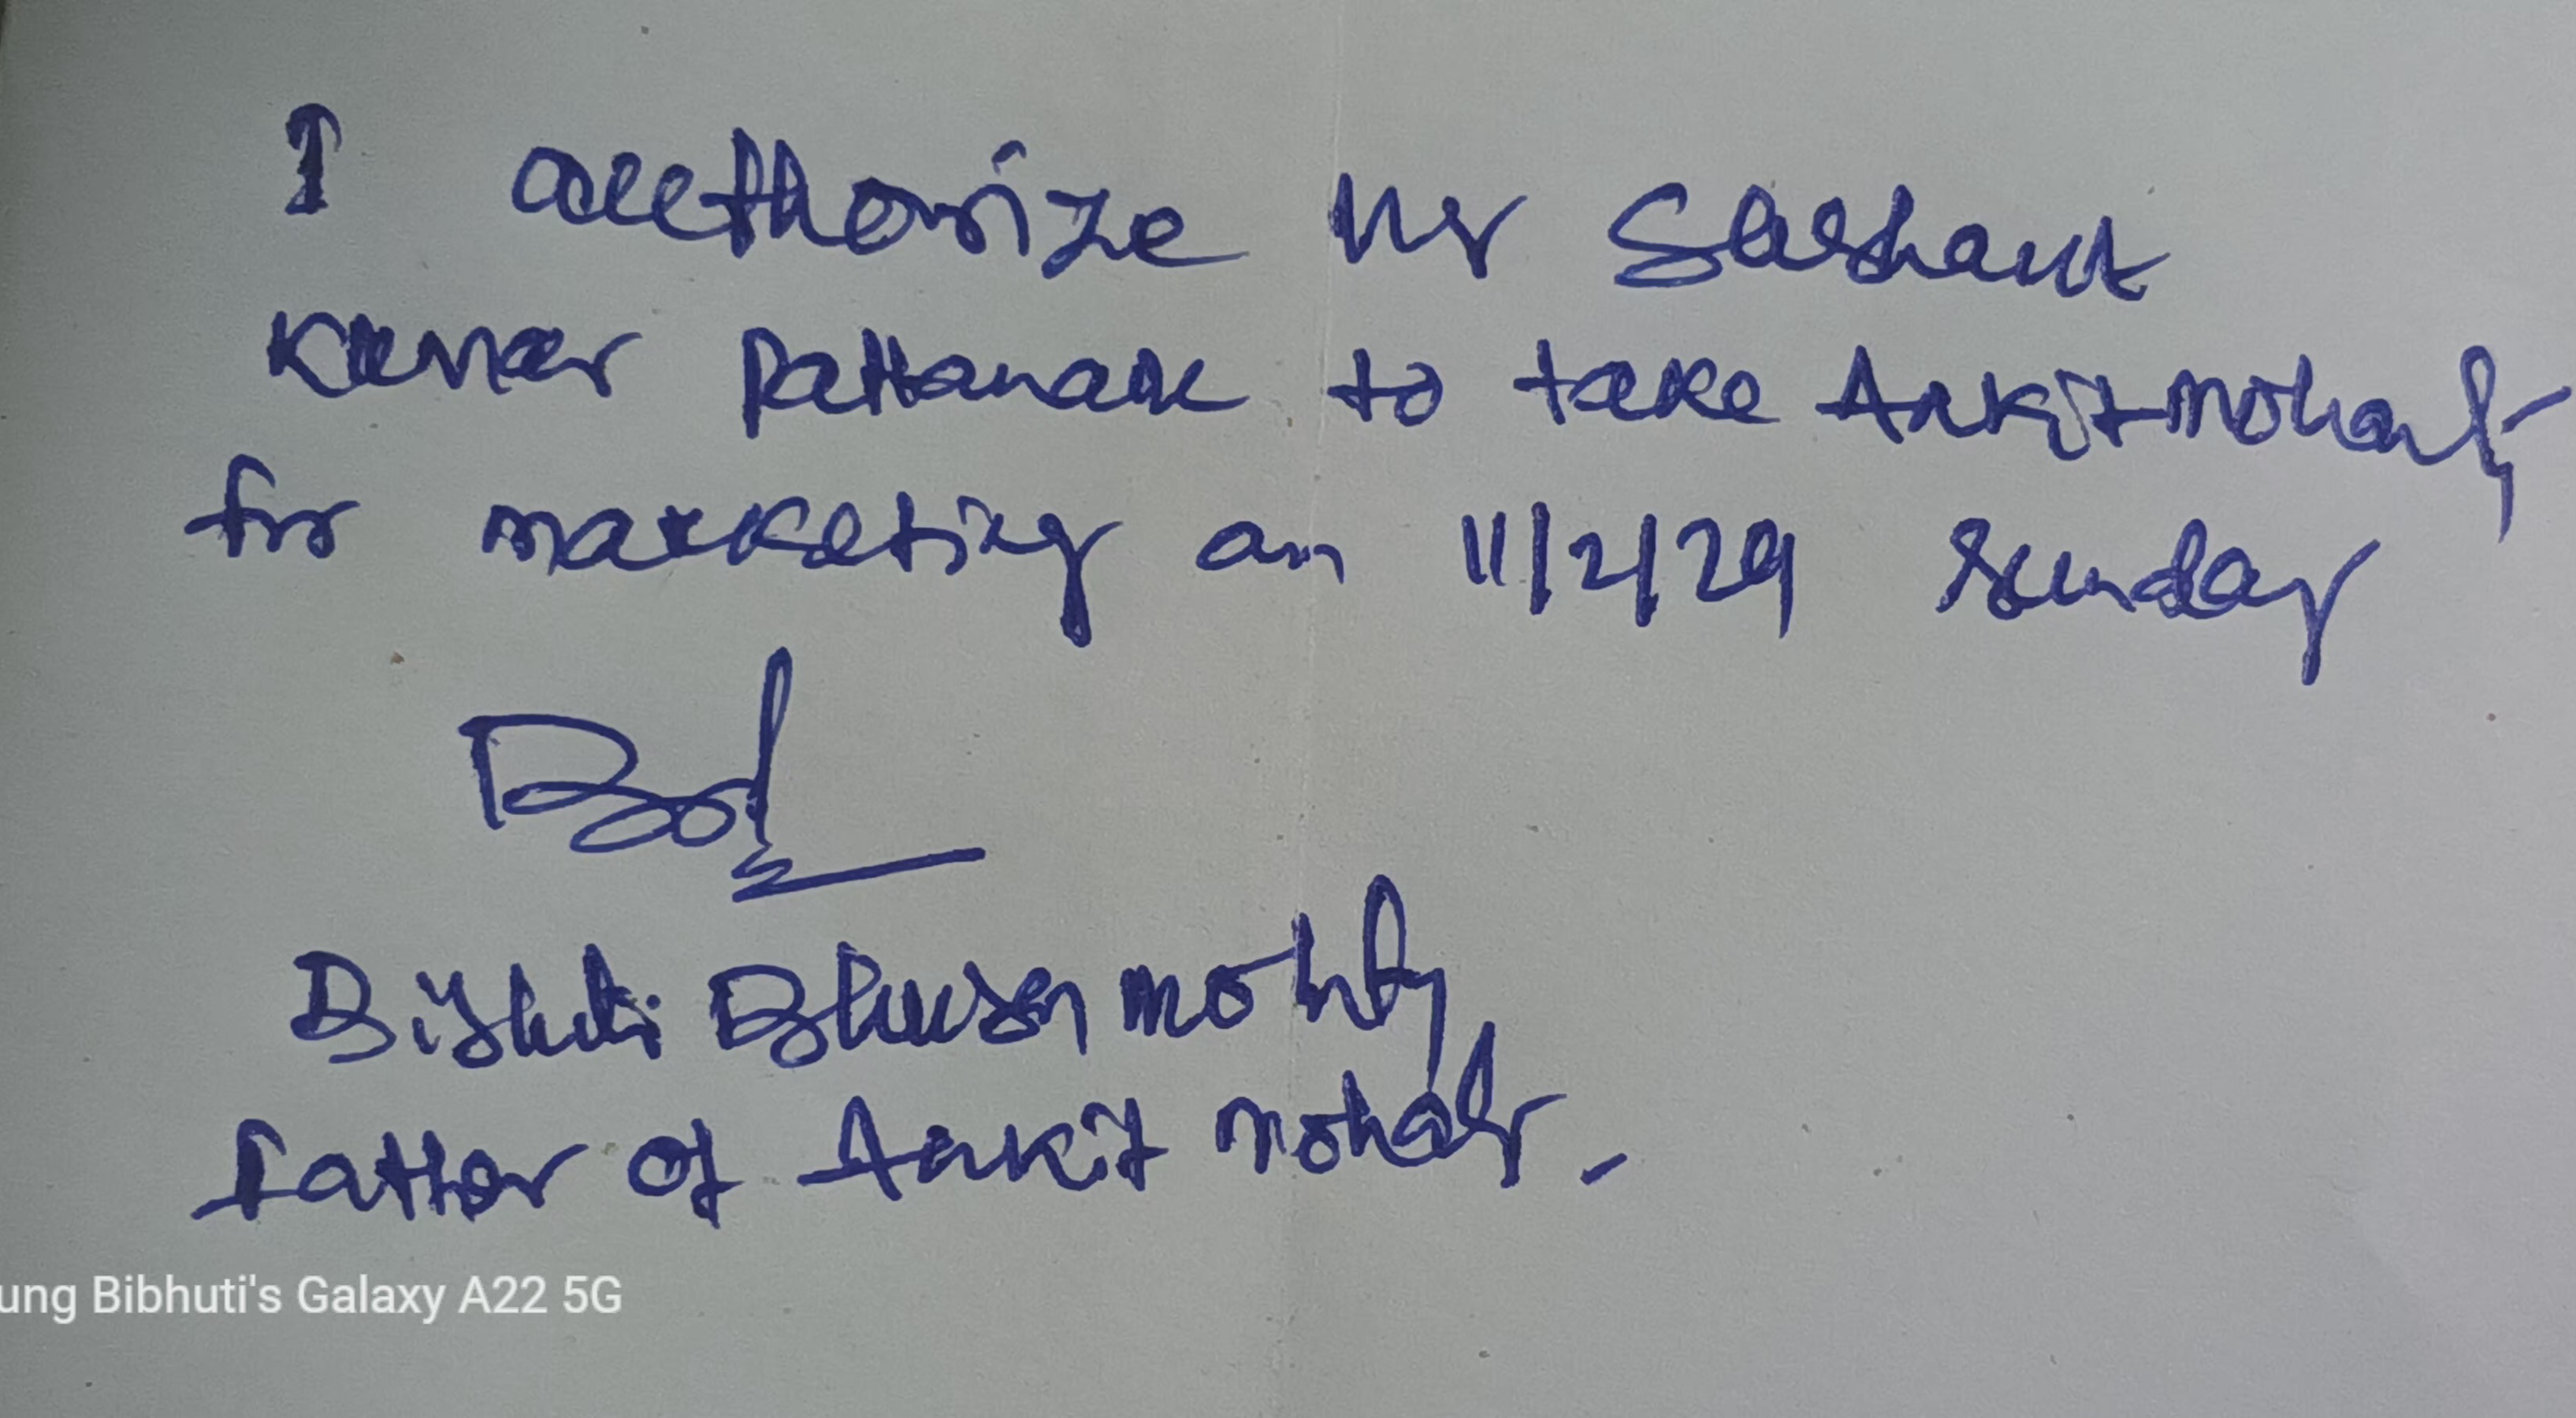 I authorize Mr Sushant
Kumar Pattanaik to take Ankit Mohanty
for marketing on 11/2/24 Sunday
Bibhuti Bhusan Mohanty
Father of Ankit Mohanty.
ung Bibhuti's Galaxy A22 5G